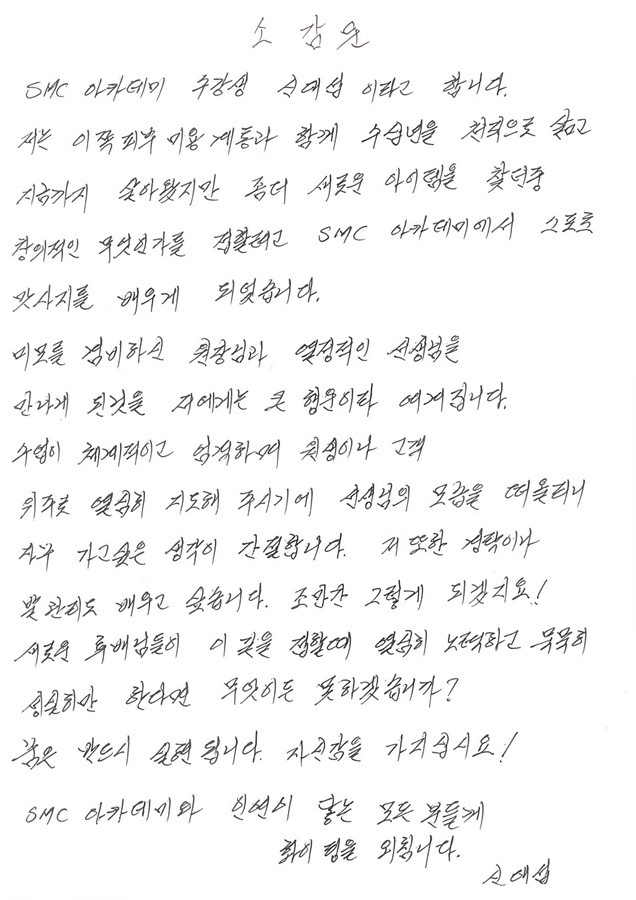 소 감 문
SMC 아카데미 수강생 신대섭 이라고 합니다.
저는 이쪽 피부 미용 계통과 함께 수십년을 천직으로 삼고
지금까지 살아왔지만 좀더 새로운 아이템을 찾던중
창의적인 무엇인가를 접할려고 SMC 아카데미에서 스포츠
맛사지를 배우게 되었습니다.
미모를 겸비하신 원장님과 열정적인 선생님을
만나게 된것을 저에게는 큰 행운이라 여겨집니다.
수업이 체계적이고 엄격하며 원생이나 고객
위주로 열심히 지도해 주시기에 선생님의 모습을 떠올리니
자꾸 가고싶은 생각이 간절합니다. 저 또한 경락이나
발 관리도 배우고 싶습니다. 조만간 그렇게 되겠지요!
새로운 후배님들이 이 곳을 접할때 열심히 노력하고 묵묵히
성실히만 한다면 무엇이든 못하겠습니까?
꿈은 반드시 실현 됩니다. 자신감을 가지십시요!
SMC 아카데미와 인연이 닿는 모든 분들께
화이팅을 외칩니다.
신대섭